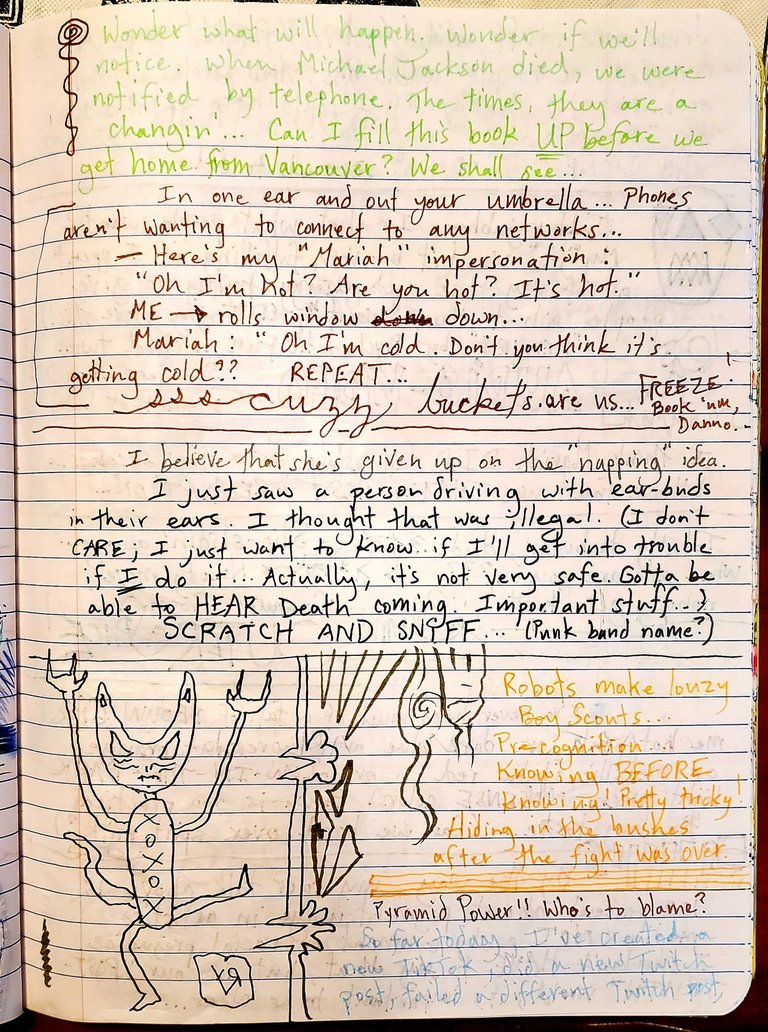 Wonder what will happen. Wonder if we'll
notice. When Michael Jackson died, we were
notified by telephone. The times, they are a
changin'... Can I fill this book UP before we
get home from Vancouver? We shall see...
In one ear and out your umbrella... Phones
aren't wanting to connect to any networks...
— Here's my "Mariah" impersonation:
"Oh I'm hot? Are you hot? It's hot."
ME → rolls window down...
Mariah: "Oh I'm cold. Don't you think it's
getting cold?? REPEAT...
sss cuzz buckets are us... FREEZE!
Book 'um,
Danno...
I believe that she's given up on the "napping" idea.
I just saw a person driving with ear-buds
in their ears. I thought that was illegal. (I don't
CARE; I just want to know if I'll get into trouble
if I do it... Actually, it's not very safe. Gotta be
able to HEAR Death coming. Important stuff...)
SCRATCH AND SNIFF... (Punk band name?)
Robots make louzy
Boy Scouts...
Precognition...
Knowing BEFORE
knowing! Pretty tricky!
Hiding in the bushes
after the fight was over.
XOXOX
Pyramid Power!! Who's to blame?
So far today, I've created a
new TikTok, did a new Twitch
post, failed a different Twitch post,